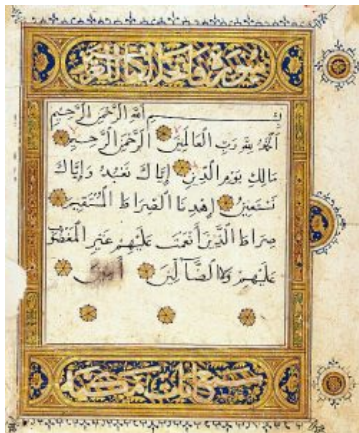 سورة فاتحة الكتاب
بسم الله الرحمن الرحيم
الحمد لله رب العالمين الرحمن الرحيم
مالك يوم الدين إياك نعبد وإياك
نستعين إهدنا الصراط المستقيم
صراط الذين أنعمت عليهم غير المغضوب
عليهم ولا الضالين